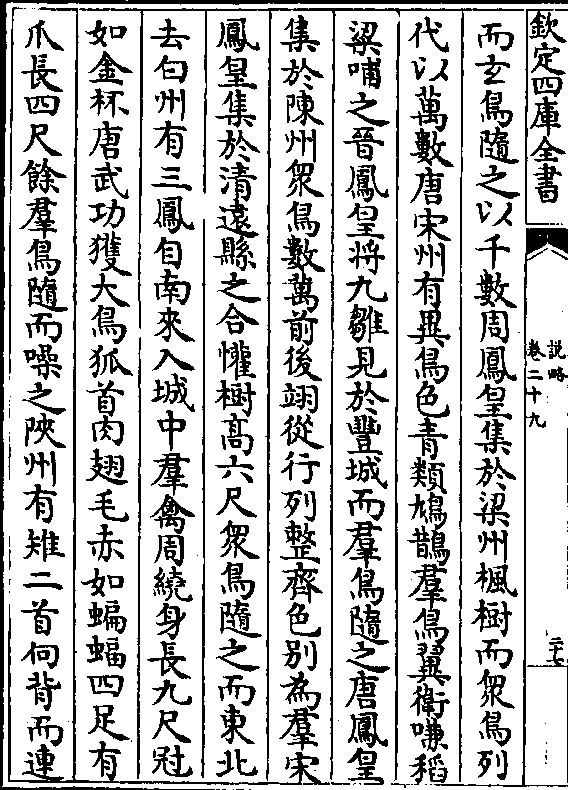 欽定四庫全書
說略
卷二十九
二十七
而玄鳥隨之以千數周鳳皇集於梁州楓樹而衆鳥列
代以萬數唐宋州有異鳥色青類鳩鵲羣鳥翼衛嗛稻
粱哺之晉鳳皇將九雛見於豐城而羣鳥隨之唐鳳皇
集於陳州衆鳥數萬前後翊從行列整齊色别為羣宋
鳳皇集於清遠縣之合懽樹高六尺衆鳥隨之而東北
去白州有三鳳自南來入城中羣禽周繞身長九尺冠
如金杯唐武功獲大鳥狐首肉翅毛赤如蝙蝠四足有
爪長四尺餘羣鳥隨而噪之陝州有雉二首向背而連